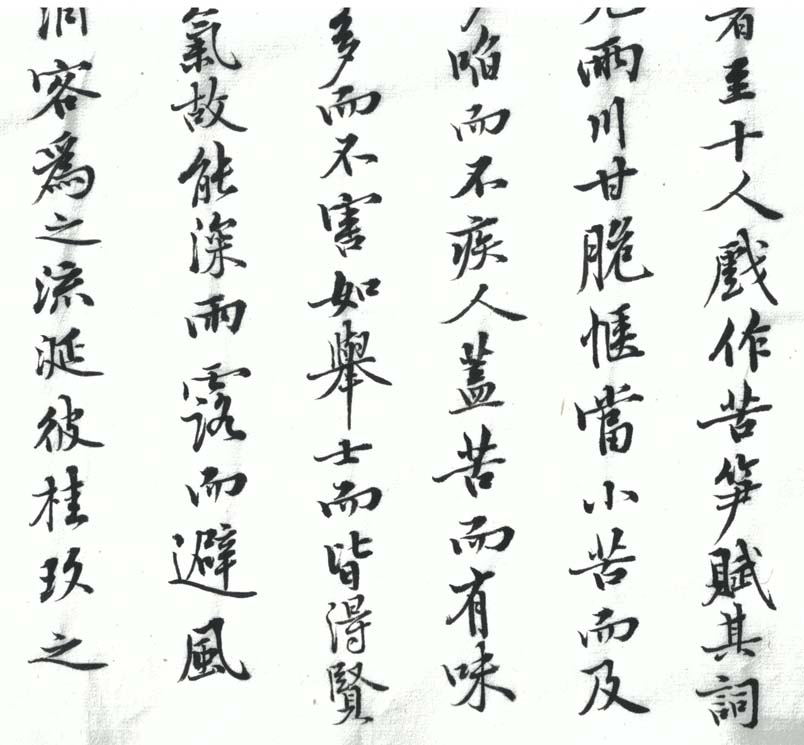 者至十人戲作苦笋賦其詞
兩川甘脆愜當小苦而及
啗而不疾人蓋苦而有味
多而不害如舉士而皆得賢
氣故能深雨露而避風
客爲之流涎彼桂玖之